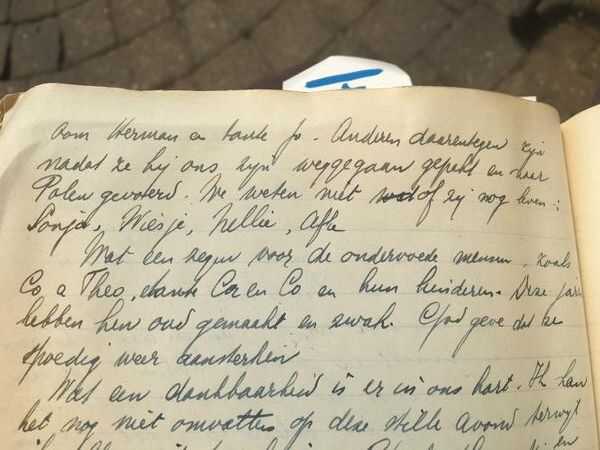 oom Herman en tante Jo. Anderen daarentegen zijn
nadat ze bij ons zijn weggegaan gepakt en naar
Polen gevoerd. We weten niet of zij nog leven:
Sonja, Wiesje, Nellie,
Wat een zegen voor de ondervoede mensen, zoals
Co en Theo, tante Co en Co en hun kinderen. Deze jaren
hebben hen oud gemaakt en zwak. God geve dat ze
spoedig weer aansterken
Wat een dankbaarheid is er in ons hart. Ik kan
het nog niet omvatten op deze stille avond terwijl